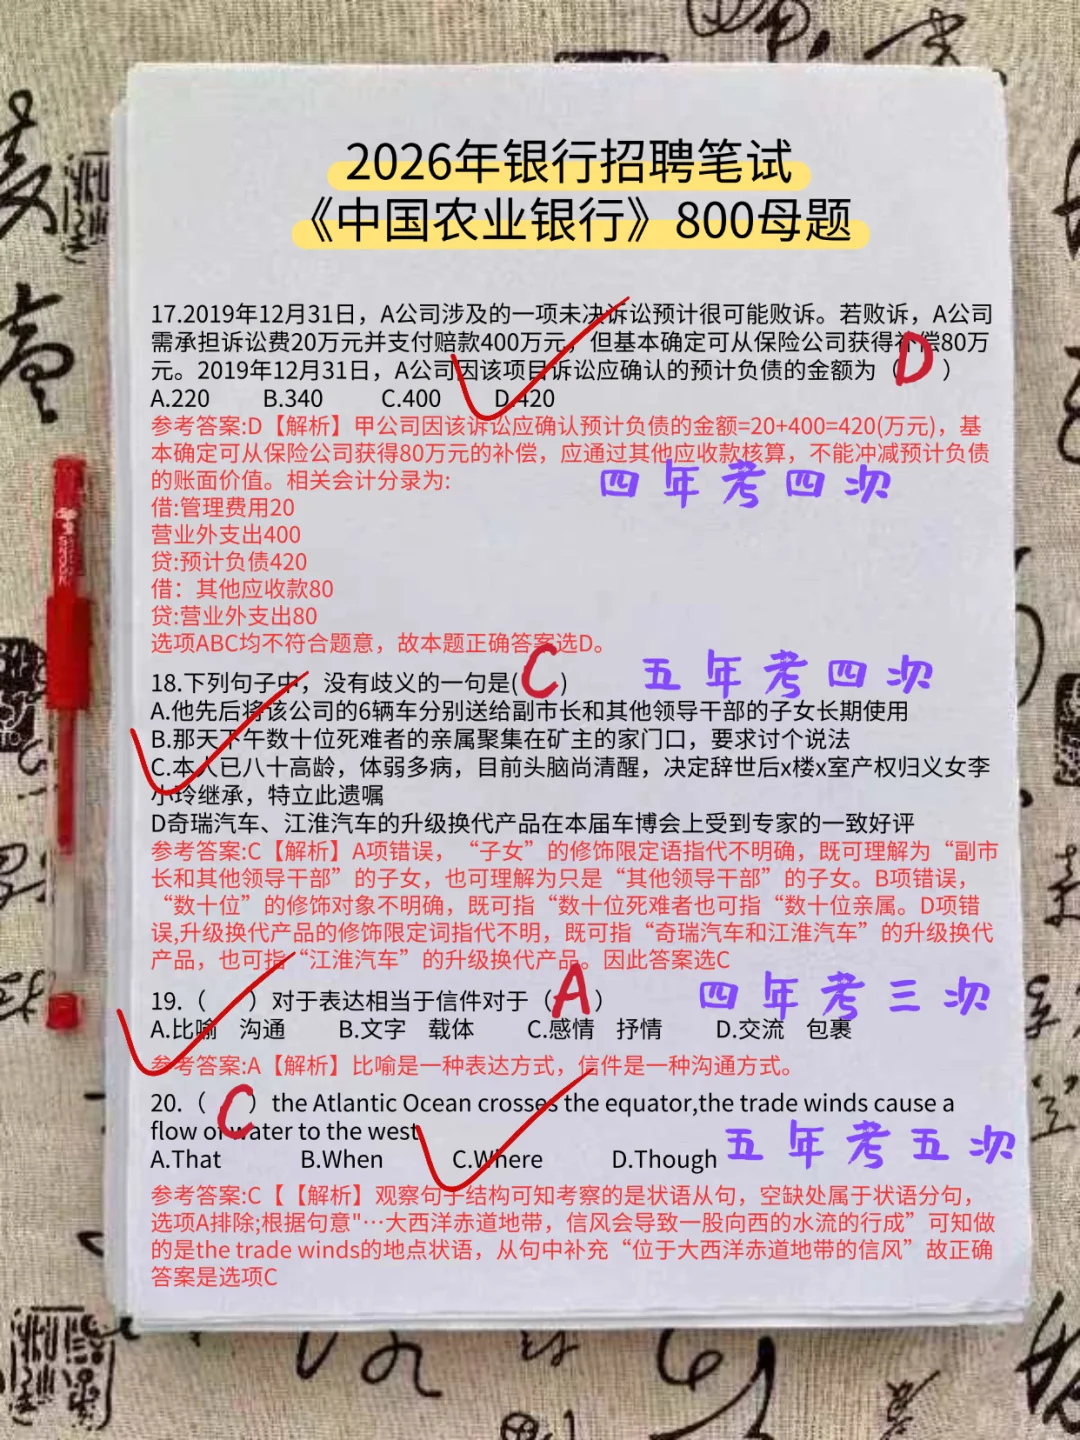 2026年银行招聘笔试
《中国农业银行》800母题
17.2019年12月31日，A公司涉及的一项未决诉讼预计很可能败诉。若败诉，A公司
需承担诉讼费20万元并支付赔款400万元，但基本确定可从保险公司获得补偿80万
元。2019年12月31日，A公司因该项目诉讼应确认的预计负债的金额为（D）
A.220 B.340 C.400 D.420
参考答案:D【解析】甲公司因该诉讼应确认预计负债的金额=20+400=420(万元)，基
本确定可从保险公司获得80万元的补偿，应通过其他应收款核算，不能冲减预计负债
的账面价值。相关会计分录为:
四年考四次
借:管理费用20
营业外支出400
贷:预计负债420
借：其他应收款80
贷:营业外支出80
选项ABC均不符合题意，故本题正确答案选D。
五年考四次
18.下列句子中，没有歧义的一句是(C)
A.他先后将该公司的6辆车分别送给副市长和其他领导干部的子女长期使用
B.那天下午数十位死难者的亲属聚集在矿主的家门口，要求讨个说法
C.本人已八十高龄，体弱多病，目前头脑尚清醒，决定辞世后x楼x室产权归义女李
小玲继承，特立此遗嘱
D奇瑞汽车、江淮汽车的升级换代产品在本届车博会上受到专家的一致好评
参考答案:C【解析】A项错误，“子女”的修饰限定语指代不明确，既可理解为“副市
长和其他领导干部”的子女，也可理解为只是“其他领导干部”的子女。B项错误，
“数十位”的修饰对象不明确，既可指“数十位死难者也可指“数十位亲属。D项错
误,升级换代产品的修饰限定词指代不明，既可指“奇瑞汽车和江淮汽车”的升级换代
产品，也可指“江淮汽车”的升级换代产品。因此答案选C
19.（A）对于表达相当于信件对于（ ）
四年考三次
A.比喻 沟通 B.文字 载体 C.感情 抒情 D.交流 包裹
参考答案:A【解析】比喻是一种表达方式，信件是一种沟通方式。
20.（C）the Atlantic Ocean crosses the equator,the trade winds cause a
flow of water to the west
A.That B.When C.Where D.Though
五年考五次
参考答案:C【【解析】观察句子结构可知考察的是状语从句，空缺处属于状语分句，
选项A排除;根据句意"…大西洋赤道地带，信风会导致一股向西的水流的行成”可知做
的是the trade winds的地点状语，从句中补充“位于大西洋赤道地带的信风”故正确
答案是选项C